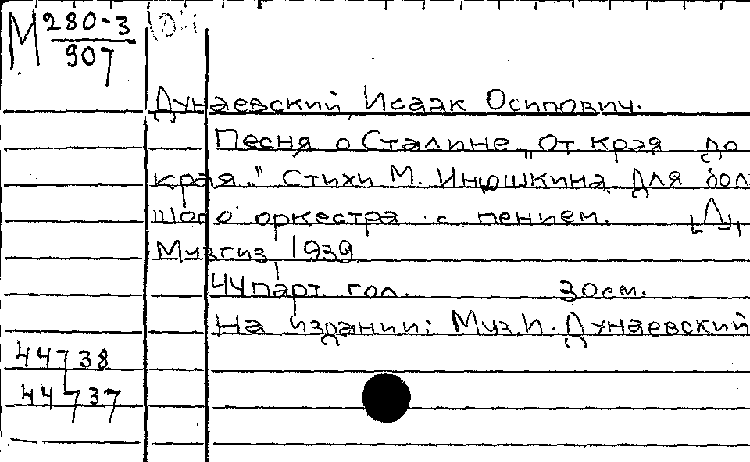 М 280-3
907
Дунаевский, Исаак Осипович.
Песня о Сталине „От края до
края." Стихи М. Инюшкина. Для боль
шого оркестра с пением.
Музгиз, 1939
44 парт. гол. 30 см.
На издании: Муз. И. Дунаевский
44738
44737